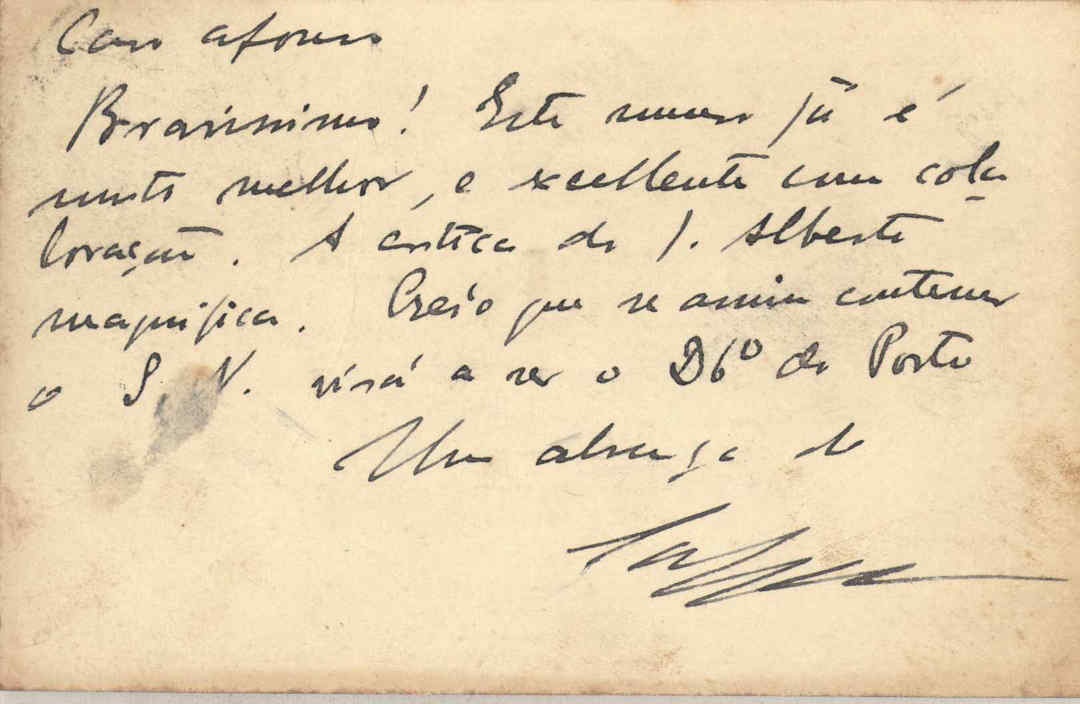 Caro Afonso
Bravissimo! Este numero já é
muito melhor, e excellente com cola
boração. A critica do J. Alberto
magnifica. Creio que se assim continuar
o S. N. virá a ser o D6º do Porto
Um abraço do